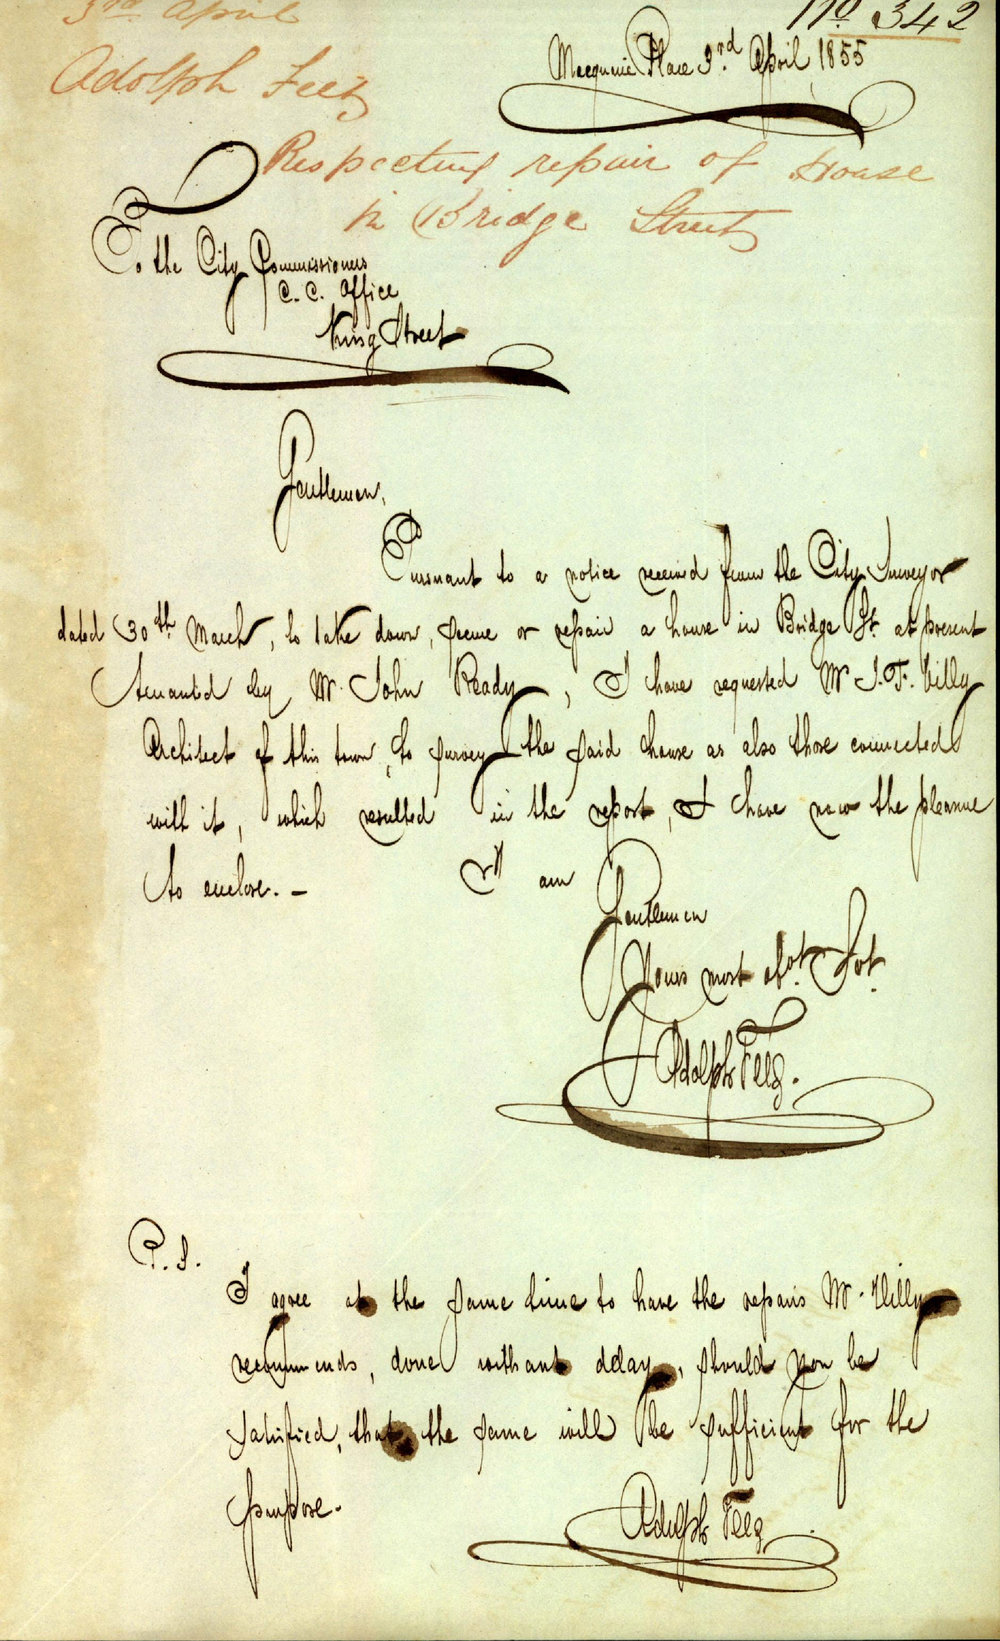 3rd April
No 342
Macquarie Place 3rd April 1855
Adolph Feez
Respecting repair of House
in Bridge Street
To the City Commissioners
C. C. Office
King Street
Gentlemen,
Pursuant to a notice received from the City Surveyor
dated 30th March, to take down, secure or repair a house in Bridge St. at present
tenanted by Mr. John Ready, I have requested Mr J. F. Hilly
Architect of this town, to survey the said house as also those connected
with it, which resulted in the report, I have now the pleasure
to enclose. –
I am
Gentlemen
Yours most obdt. Svt.
Adolph Feez.
P. S.
I agree at the same time to have the repairs Mr. Hilly
recommends, done without delay, should you be
satisfied, that the same will be sufficient for the
purpose.
Adolph Feez